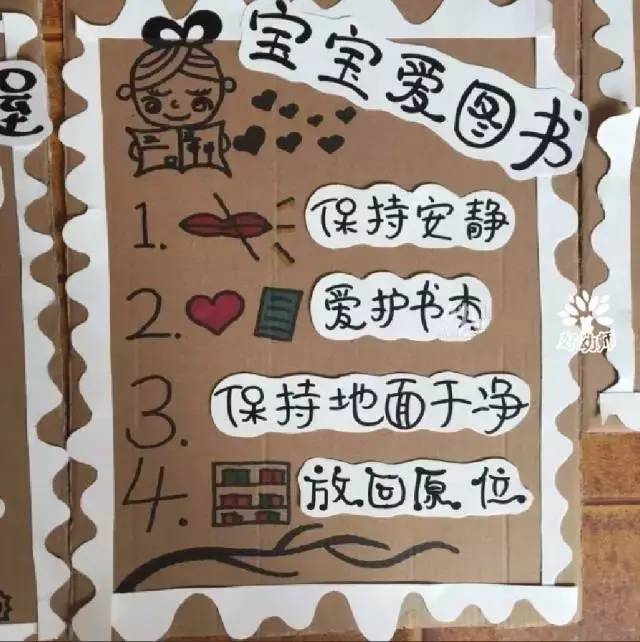 宝宝爱图书
1. 保持安静
2. 爱护书本
3. 保持地面干净
4. 放回原位
好幼师